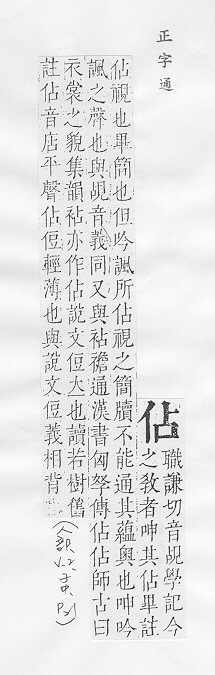 正字通
佔
職謙切音覘學記今
之敎者呻其佔畢註
佔視也畢簡也但吟諷所佔視之簡牘不能通其蘊奧也呻吟
諷之聲也與覘音義同又與袩襜通漢書匈孥傳佔佔師古曰
衣裳之貌集韻袩亦作佔說文侸立也讀若樹舊
註佔音店平聲佔侸輕薄也與說文侸義相背